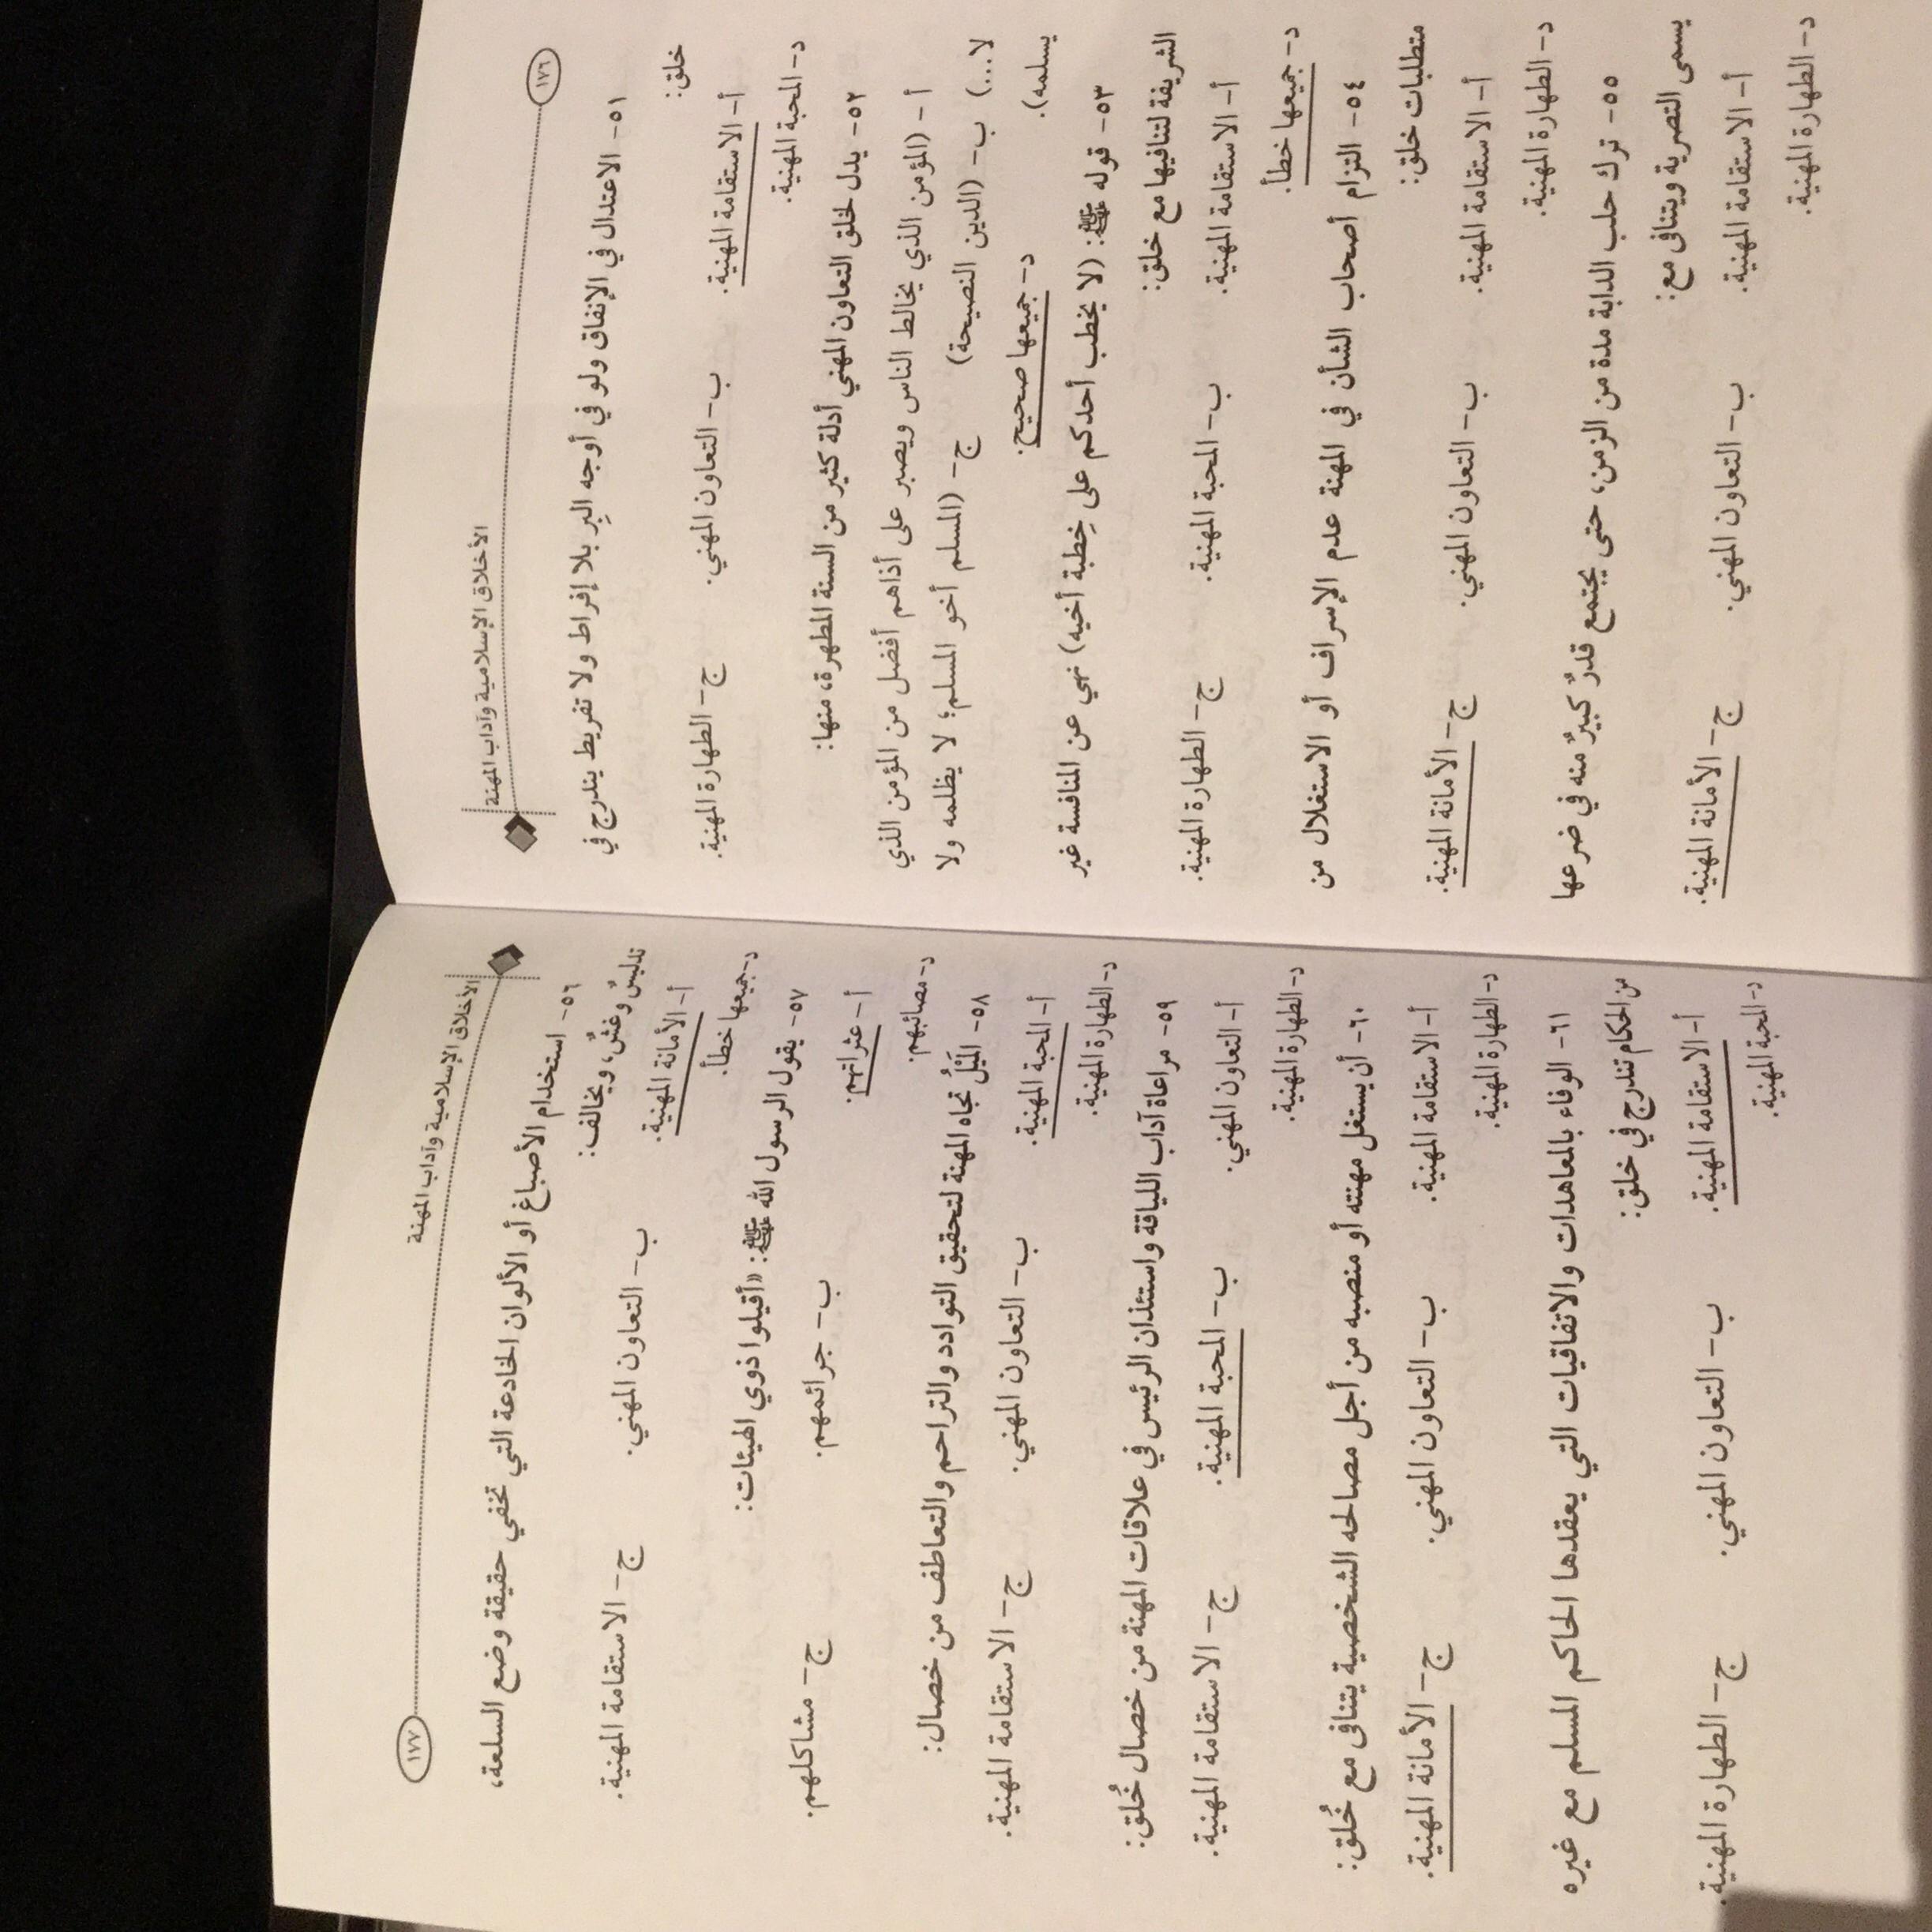 الأخلاق الإسلامية وآداب المهنة
١٧٦
٥١- الاعتدال في الإنفاق ولو في أوجه البِر بلا إفراط ولا تفريط يندرج في
خلق:
أ- الاستقامة المهنية. ب- التعاون المهني. ج- الطهارة المهنية.
د- المحبة المهنية.
٥٢- يدل لخلق التعاون المهني أدلة كثير من السنة المطهرة، منها:
أ - (المؤمن الذي يخالط الناس ويصبر على أذاهم أفضل من المؤمن الذي
لا...) ب- (الدين النصيحة) ج- (المسلم أخو المسلم؛ لا يظلمه ولا
يسلمه). د- جميعها صحيح.
٥٣- قوله ﷺ: (لا يخطب أحدكم على خِطبة أخيه) نهي عن المنافسة غير
الشريفة لتنافيها مع خلق:
أ- الاستقامة المهنية. ب- المحبة المهنية. ج- الطهارة المهنية.
د- جميعها خطأ.
٥٤- التزام أصحاب الشأن في المهنة عدم الإسراف أو الاستغلال من
متطلبات خلق:
أ- الاستقامة المهنية. ب- التعاون المهني. ج- الأمانة المهنية.
د- الطهارة المهنية.
٥٥- ترك حلب الدابة مدة من الزمن، حتى يجتمع قدرٌ كبيرٌ منه في ضرعها
يسمى التصرية ويتنافى مع:
أ- الاستقامة المهنية. ب- التعاون المهني. ج- الأمانة المهنية.
د- الطهارة المهنية.
الأخلاق الإسلامية وآداب المهنة
١٧٧
٥٦- استخدام الأصباغ أو الألوان الخادعة التي تخفي حقيقة وضع السلعة،
تدليسٌ وغشٌ، ويخالف:
أ- الأمانة المهنية. ب- التعاون المهني. ج- الاستقامة المهنية.
د- جميعها خطأ.
٥٧- يقول الرسول الله ﷺ: «أقيلوا ذوي الهيئات:
أ- عثراتهم. ب- جرائمهم. ج- مشاكلهم.
د- مصائبهم.
٥٨- المَيْلُ تجاه المهنة لتحقيق التوادد والتراحم والتعاطف من خصال:
أ- المحبة المهنية. ب- التعاون المهني. ج- الاستقامة المهنية.
د- الطهارة المهنية.
٥٩- مراعاة آداب اللياقة واستئذان الرئيس في علاقات المهنة من خصال خُلق:
أ- التعاون المهني. ب- المحبة المهنية. ج- الاستقامة المهنية.
د- الطهارة المهنية.
٦٠- أن يستغل مهنته أو منصبه من أجل مصالحه الشخصية يتنافى مع خُلق:
أ- الاستقامة المهنية. ب- التعاون المهني. ج- الأمانة المهنية.
د- الطهارة المهنية.
٦١- الوفاء بالمعاهدات والاتفاقيات التي يعقدها الحاكم المسلم مع غيره
من الحكام تندرج في خلق:
أ- الاستقامة المهنية. ب- التعاون المهني. ج- الطهارة المهنية.
د- المحبة المهنية.